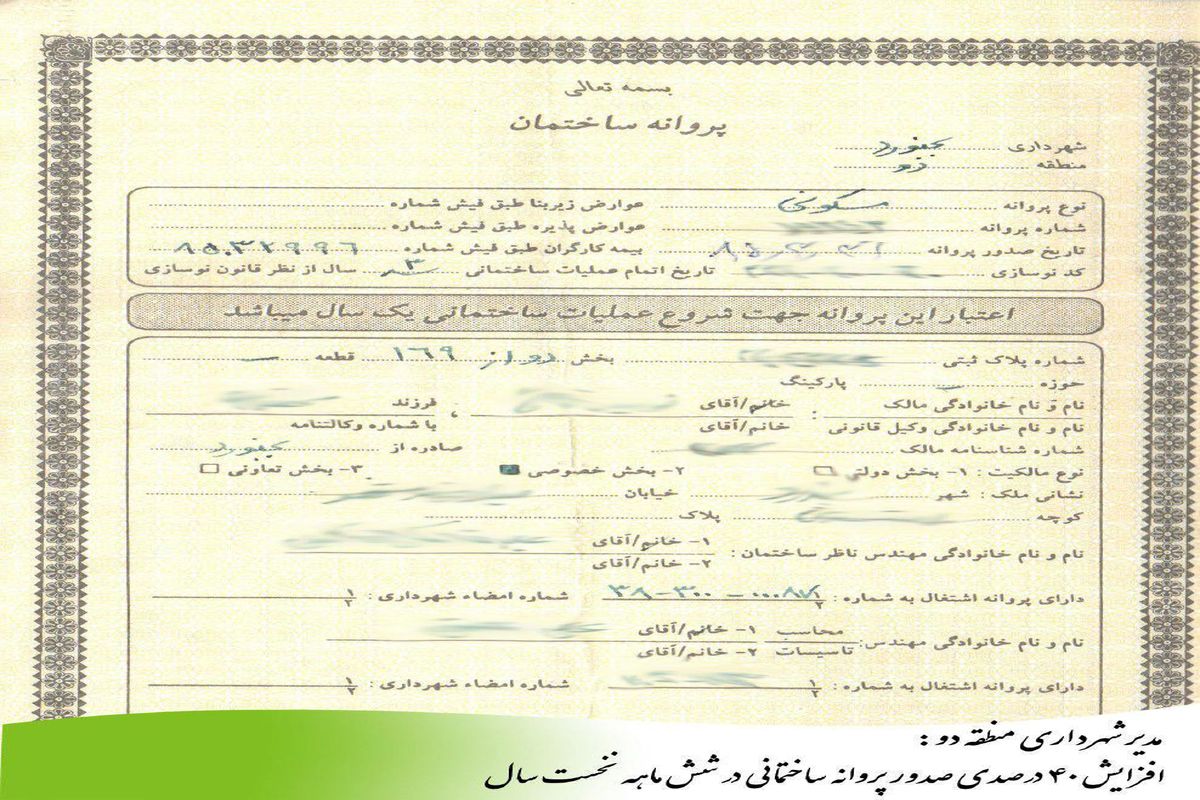 بسمه تعالی
پروانه ساختمان
شهرداری بجنورد
منطقه دو
نوع پروانه مسکونی عوارض زیربنا طبق فیش شماره
شماره پروانه عوارض پذیره طبق فیش شماره
تاریخ صدور پروانه بیمه کارگران طبق فیش شماره
کد نوسازی تاریخ اتمام عملیات ساختمانی ۳ سال از نظر قانون نوسازی
اعتبار این پروانه جهت شروع عملیات ساختمانی یک سال میباشد
شماره پلاک ثبتی بخش دو از ۱۶۹ قطعه
حوزه پارکینگ
نام و نام خانوادگی مالک : خانم/آقای فرزند
نام و نام خانوادگی وکیل قانونی خانم/آقای با شماره وکالتنامه
شماره شناسنامه مالک صادره از بجنورد
نوع مالکیت : ۱- بخش دولتی ۲- بخش خصوصی ۳- بخش تعاونی
نشانی ملک : شهر خیابان
کوچه پلاک
نام و نام خانوادگی مهندس ناظر ساختمان : ۱- خانم/آقای
۲- خانم/آقای
دارای پروانه اشتغال به شماره : ۱ ۲ شماره امضاء شهرداری : ۱ ۲
نام و نام خانوادگی مهندس: محاسب ۱- خانم/آقای
تاسیسات ۲- خانم/آقای
دارای پروانه اشتغال به شماره : ۱ ۲ شماره امضاء شهرداری : ۱ ۲
مدیر شهرداری منطقه دو :
افزایش ۴۰ درصدی صدور پروانه ساختمانی در شش ماهه نخست سال